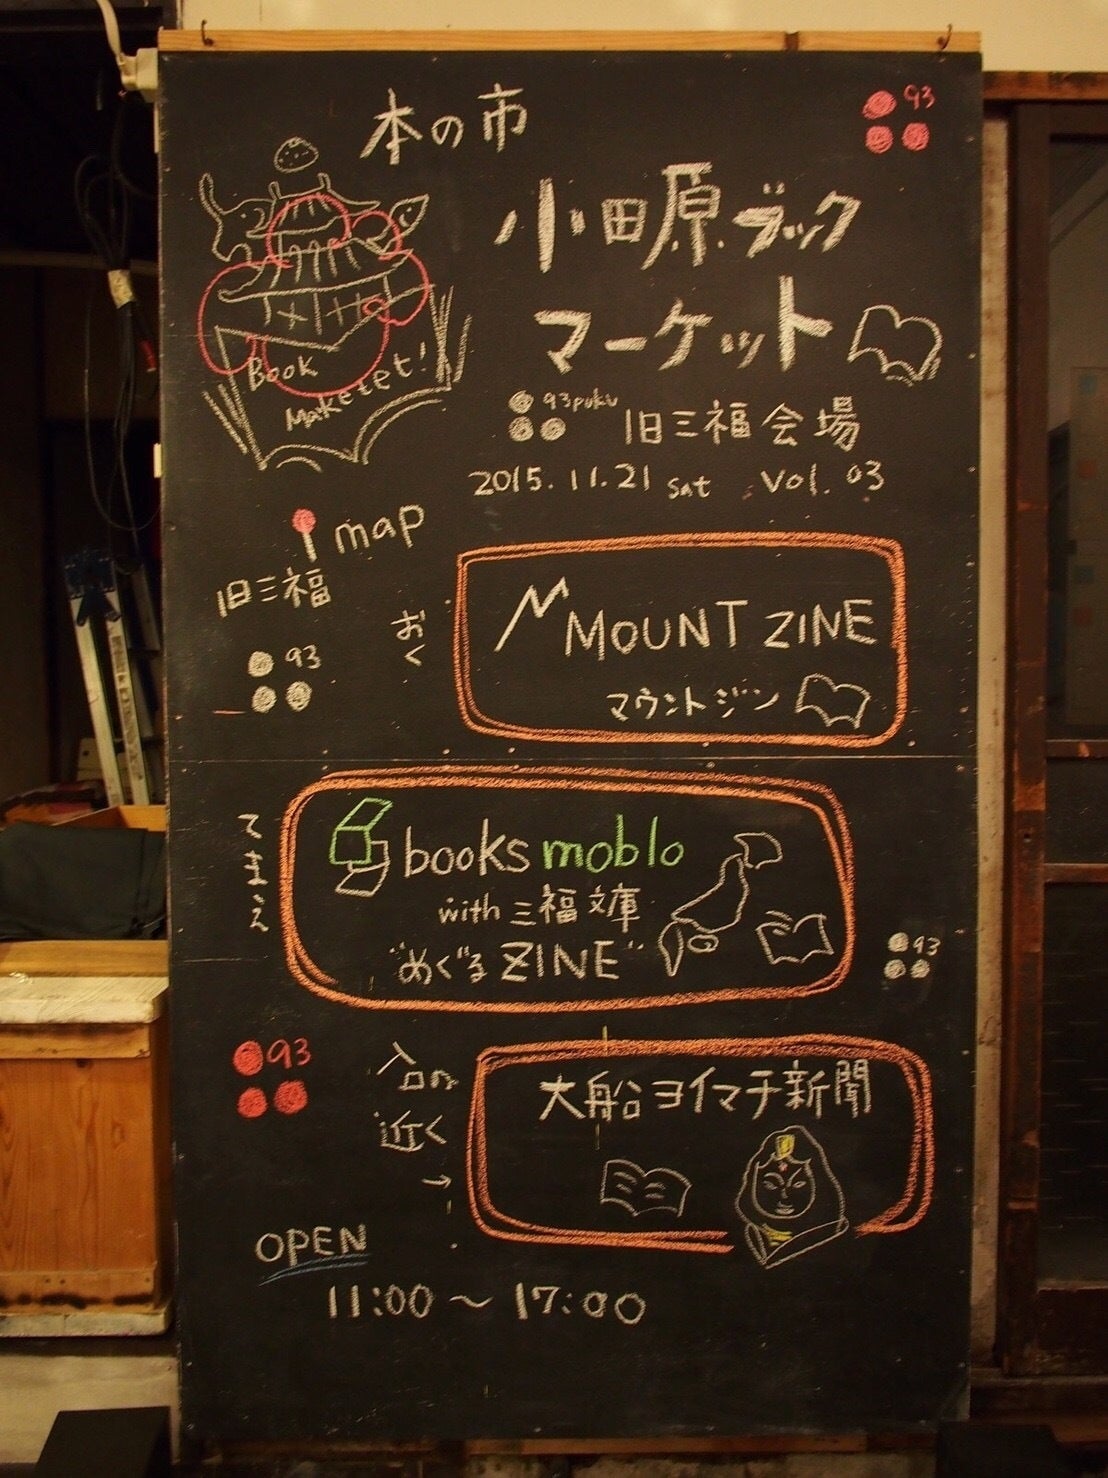 本の市
93
小田原ブック
マーケット
Book
Maketet!
93puku
旧三福会場
2015.11.21 sat vol.03
map
旧三福
93
おく
MOUNT ZINE
マウントジン
てまえ
books moblo
with 三福文庫
"めぐるZINE"
93
93
入口の
近く
→
大船ヨイマチ新聞
OPEN
11:00〜17:00